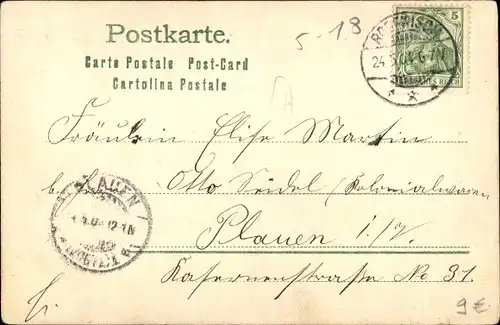 Postkarte.
Carte Postale Post-Card
Cartolina Postale
5-18
5
REICH
Fräulein Elise Martin
Otto Seidel (Kolonialwaren
Plauen i/V.
Kasernenstraße No 31.
PLAUEN
9€